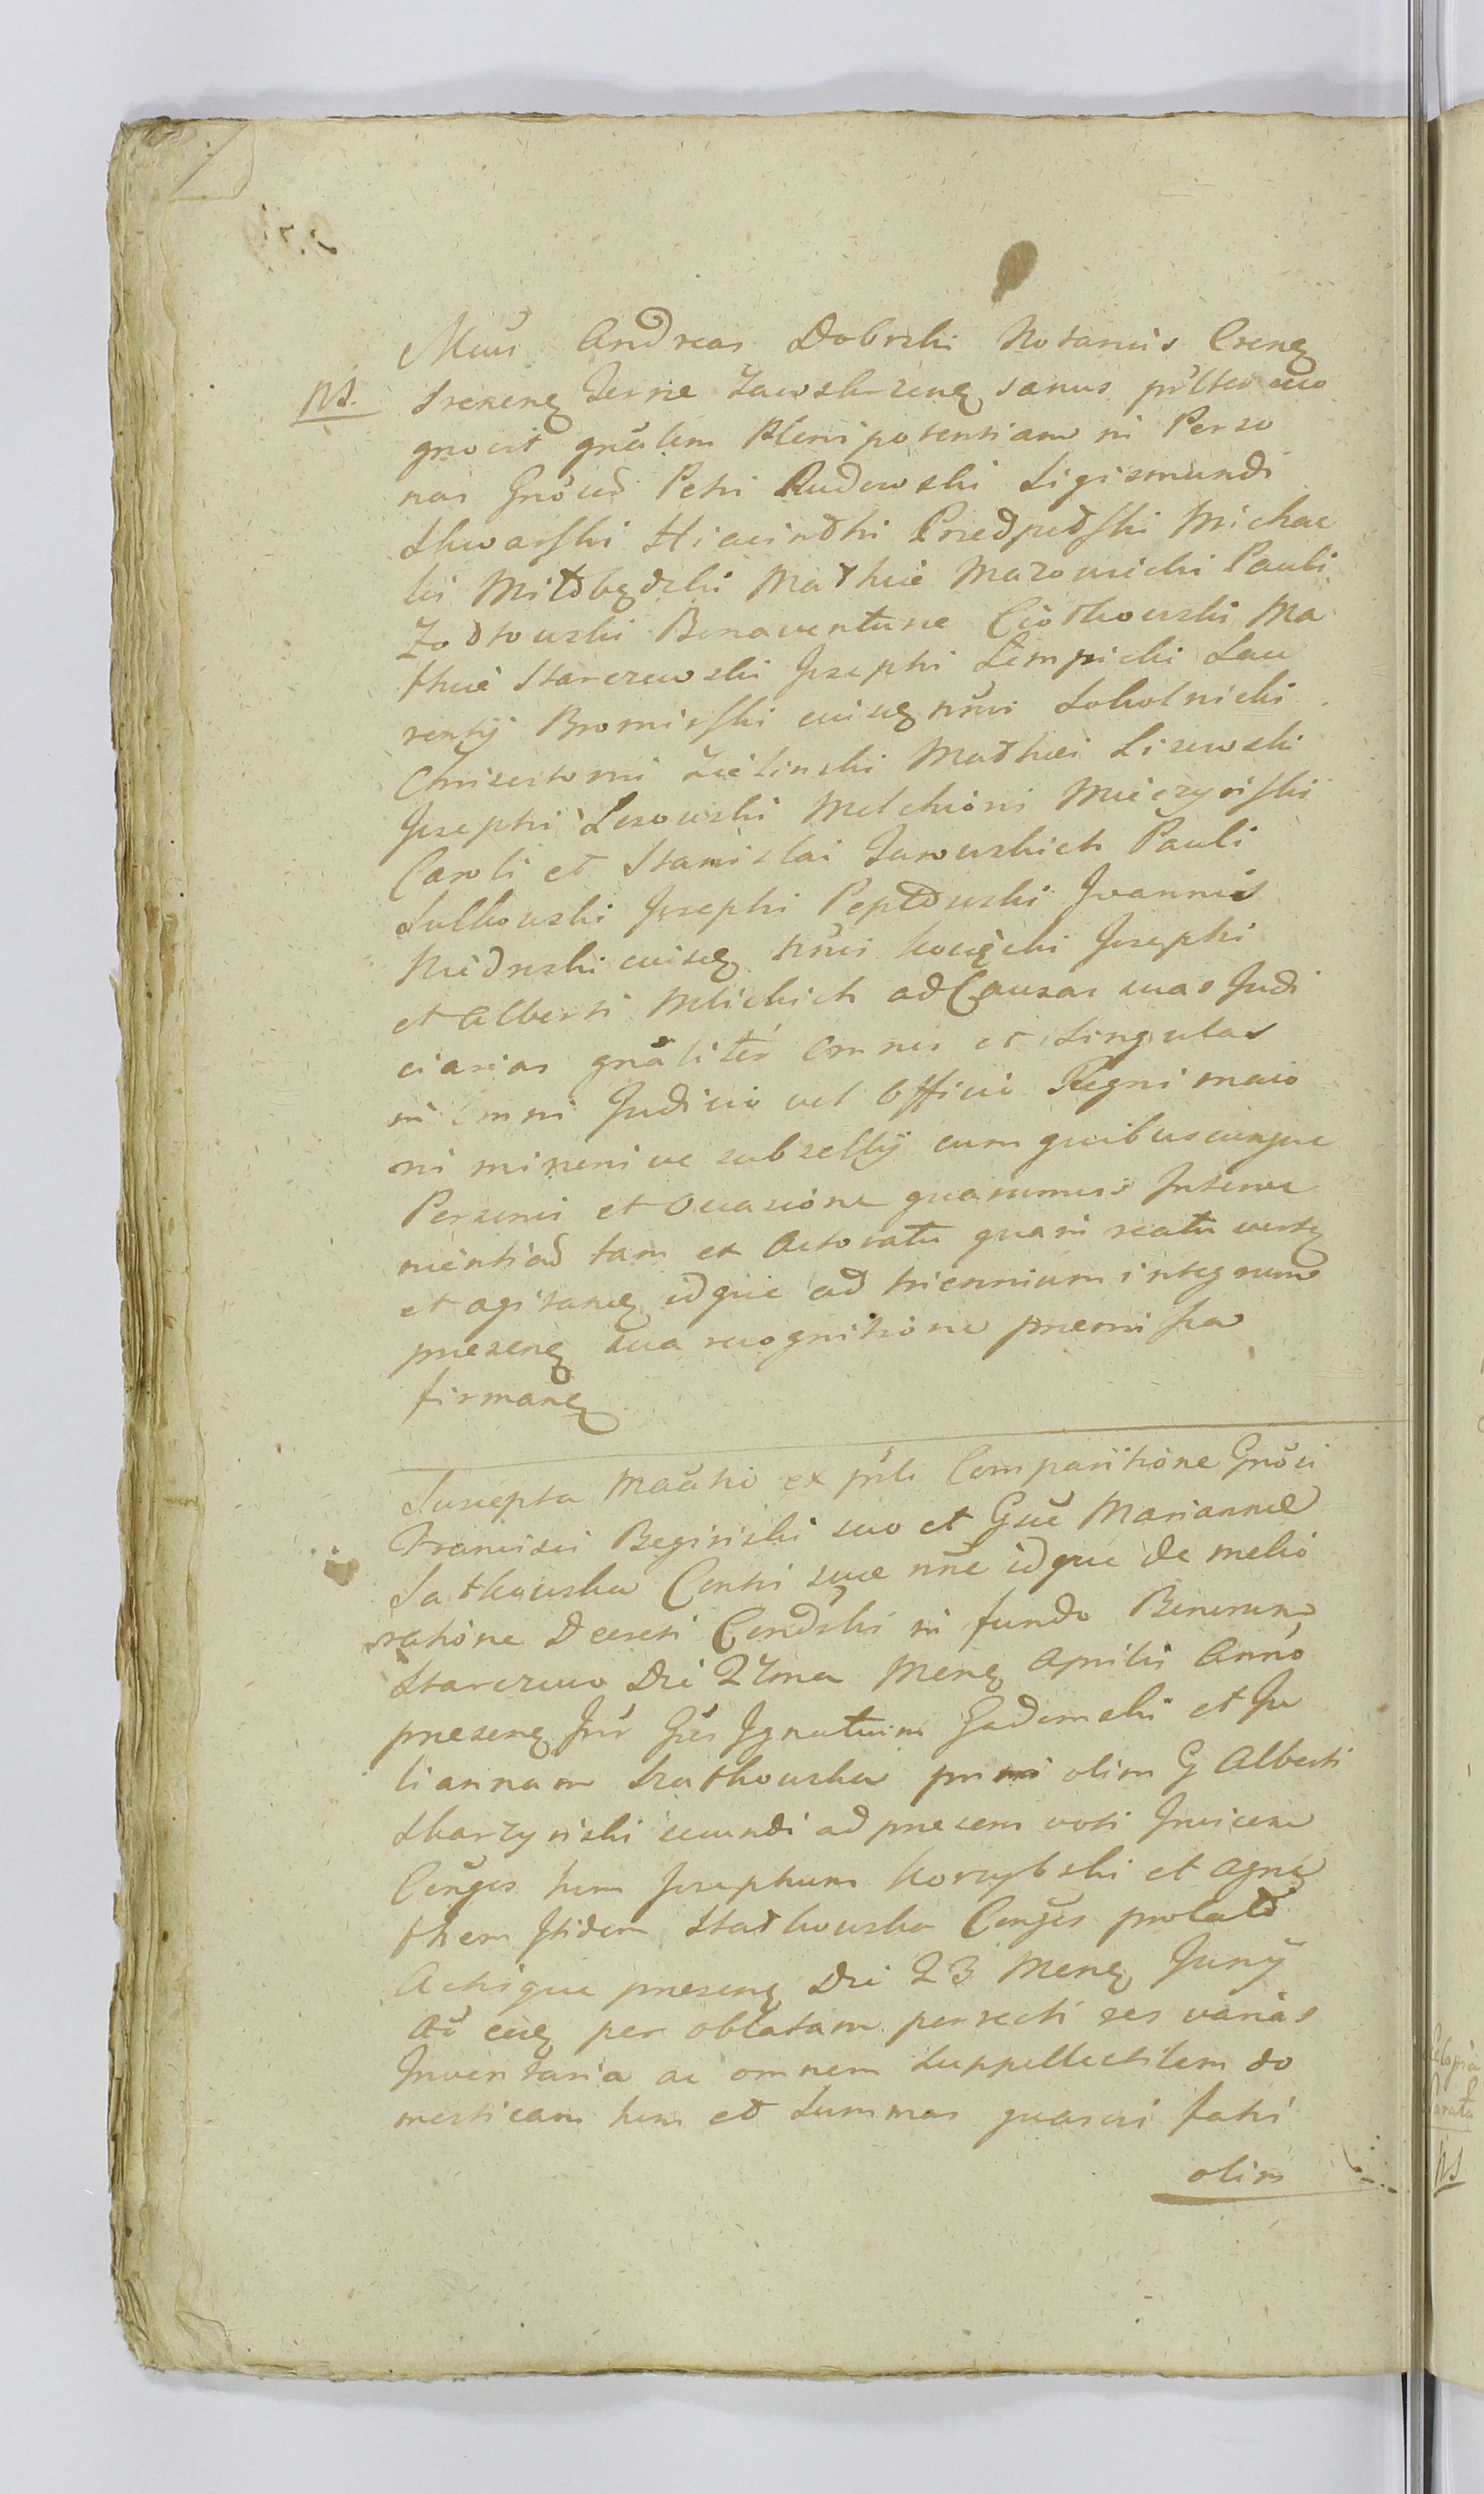 Mcus Andreas Dobrski Notarius Crens
NS. Srenens Terrae Zawskrzens sanus psltor reco
gnovit gnalem Plenipotentiam in Perso
nas Gnosor Petri Rudowski Sigismundi
Skwarski Hiacinthi Przedpełski Michae
lis Mitolędzki Mathie Mazowiecki Pauli
Żołtowski Bonaventurae Ciołkowski Ma
thiae Starczewski Josephi Lempicki Lau
rentij Bromirski cuiusq nnis Sokolnicki
Chrisostomi Zielinski Mathei Lisewski
Josephi Lesowski Melchioris Mieczyński
Caroli et Stanislai Jarowskich Pauli
Sulkowski Josephi Pepłowski Joannis
Niedrski cuiusq nnis Kowęcki Josephi
et Alberti Mlickich ad Causas suas Judi
ciarias gnaliter omnes et singulas
in omni Judicio vel Officio Regni maio
ris minoris ve subsellij cum quibuscunque
Personis et occasione quarumvis Interve
nientiar tam ex actoratu quam reatu vers
et agitans idque ad triennium integrum
praesens sua recognitione praemissa
firmans
Suscepta Mañtio ex psli Comparitione Gnosi
Francisci Beginski suo et Gsae Mariannae
Sathowska Conthi suae nne idque de melio
ratione Decreti Cond̃ski in fundo Bonorum
Starczewo Die 27ma Mens Aprilis Anno
praesens Inr Gses Ignatium Gadomski et Ju
liannam Szathowska primi olim G Alberti
Skarzynski secundi ad praesens voti Invicem
Conges tum Josephum Korzybski et Agne
them Itidem Stathowska Conges prolati
Actisque praesens Die 23 Mens Junij
Ao eoq per oblatam porrecti res varias
Inventaria ac omnem suppellectilem do
mesticam tum et summas quasvi fatis
olim